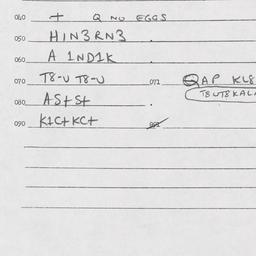 040 + Q NO EGGS
050 H1N3RN3
060 A 1ND1K
070 T8-U T8-U 071 QAP KL8
TBUT8KAL
080 AStSt
090 K1CtKCt